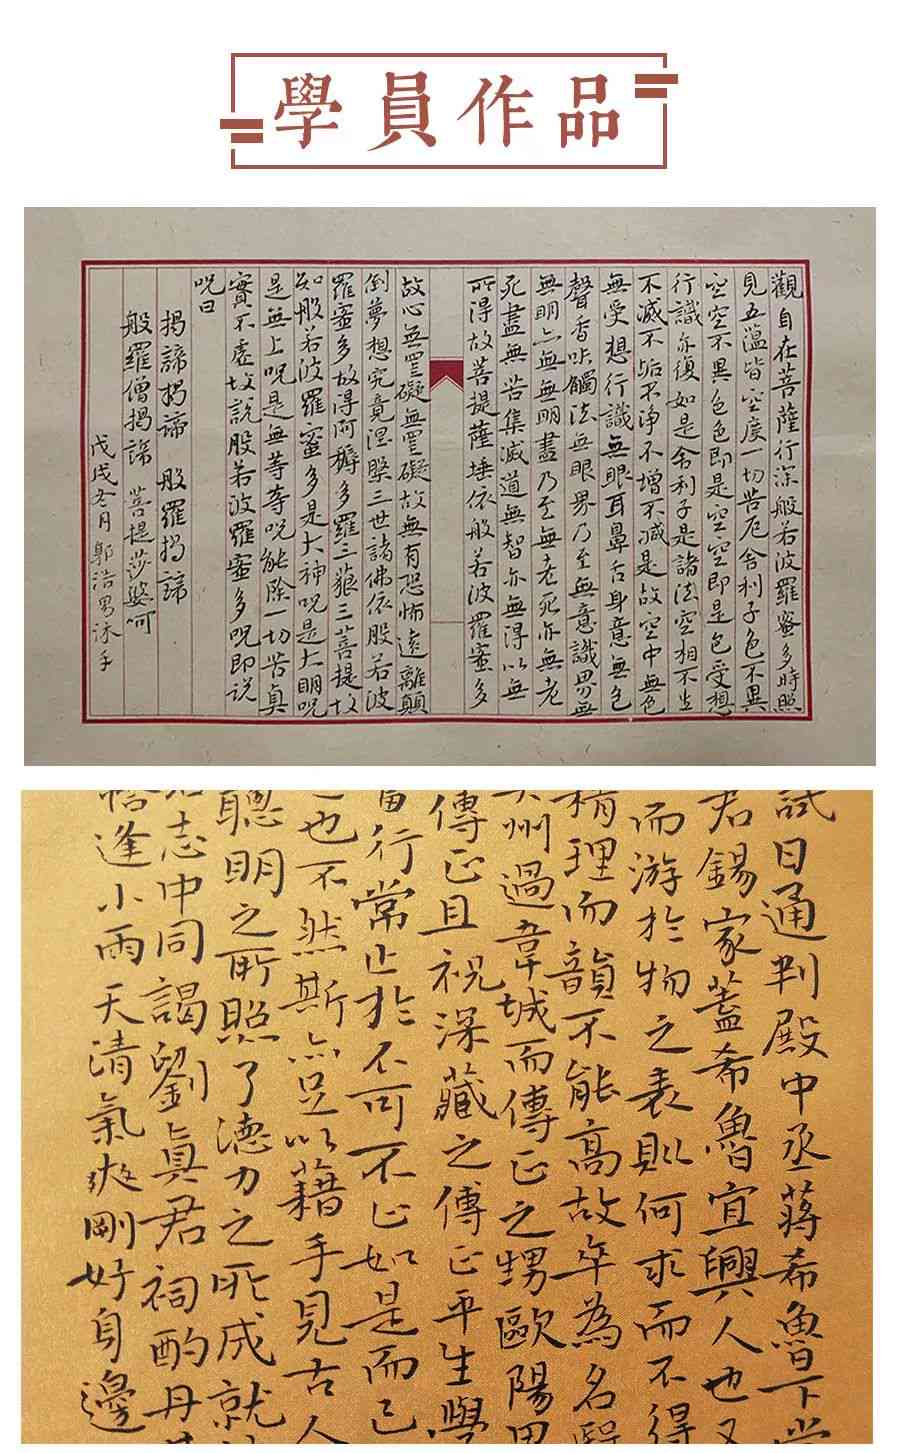 學員作品
觀自在菩薩行深般若波羅蜜多時照
見五蘊皆空度一切苦厄舍利子色不異
空空不異色色即是空空即是色受想
行識亦復如是舍利子是諸法空相不生
不滅不垢不淨不增不減是故空中無色
無受想行識無眼耳鼻舌身意無色
聲香味觸法無眼界乃至無意識界無
無明亦無無明盡乃至無老死亦無老
死盡無苦集滅道無智亦無得以無
所得故菩提薩埵依般若波羅蜜多
故心無罣礙無罣礙故無有恐怖遠離顛
倒夢想究竟涅槃三世諸佛依般若波
羅蜜多故得阿耨多羅三藐三菩提故
知般若波羅蜜多是大神咒是大明咒
是無上咒是無等等咒能除一切苦真
實不虛故說般若波羅蜜多咒即说
咒曰
揭諦揭諦 般羅揭諦
般羅僧揭諦 菩提莎婆呵
戊戌冬月郭浩男沐手
試日通判殿中丞蔣希魯下
君錫家蓋希魯宜興人也又
而游於物之表則何求而不得
精理而韻不能高故卒為名
州過韋城而傳正之甥歐陽
傳正且祝深藏之傳正平生學
當行常止於不可不止如是而已
也不然斯亦足以藉手見古人
聰明之所照了德力之所成就
志中同謁劉真君祠酌丹
逢小雨天清氣爽剛好自邊